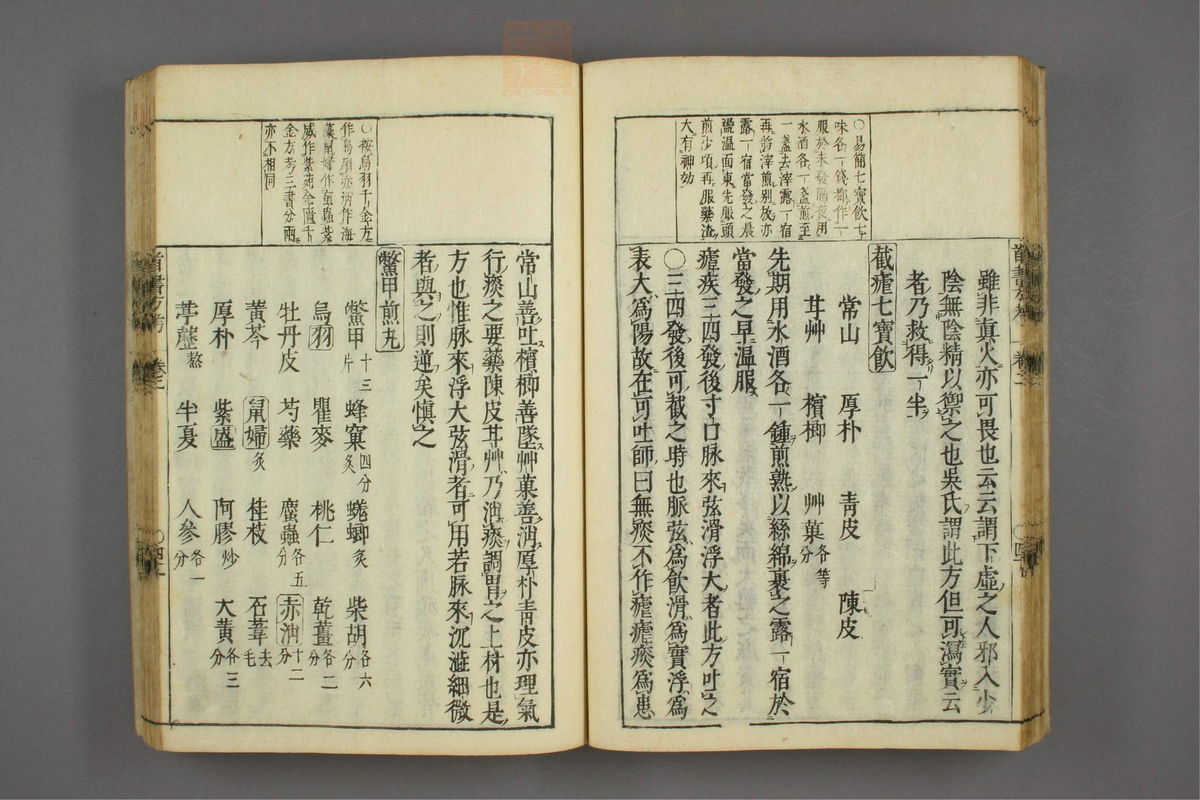 〇易簡七寶飲七
味各一錢都作一
服於未發隔夜用
水酒各一盞煎至
一盞去滓露一宿
再將滓煎別放亦
露一宿當發之晨
盪溫面東先服頭
煎少頃再服藥滓
大有神効
雖非真火亦可畏也云云謂下虛之人邪入少
陰無陰精以禦之也吳氏謂此方但可瀉實云
者乃救得一半
截瘧七寶飲
常山 厚朴 青皮 陳皮
甘艸 檳榔 艸菓各等分
先期用水酒各一鍾煎熟以絲綿裹之露一宿於
當發之早溫服
瘧疾三四發後寸口脉來弦滑浮大者此方吐之
〇三四發後可截之時也脈弦為飲滑為實浮為
表大為陽故在可吐師曰無痰不作瘧瘧痰為患
〇按烏羽千金方
作烏扇赤消作海
藻鼠婦作䖟蟲紫
威作紫菀金匱千
金方考三書分兩
亦不相同
常山善吐檳榔善墜艸菓善消厚朴青皮亦理氣
行痰之要藥陳皮甘艸乃消痰調胃之上材也是
方也惟脉來浮大弦滑者可用若脉來沉澁細微
者與之則逆矣慎之
鱉甲煎丸
鱉甲十三片 蜂窠炙四分 蜣蜋炙 柴胡各六分
烏羽 瞿麥 桃仁 乾薑各二分
牡丹皮 芍藥 䗪蟲各五分 赤消十二分
黃芩 鼠婦炙 桂枝 石葦去毛
厚朴 紫盛 阿膠炒 大黃各三分
葶藶熬 半夏 人參各一分
首書方考 卷二